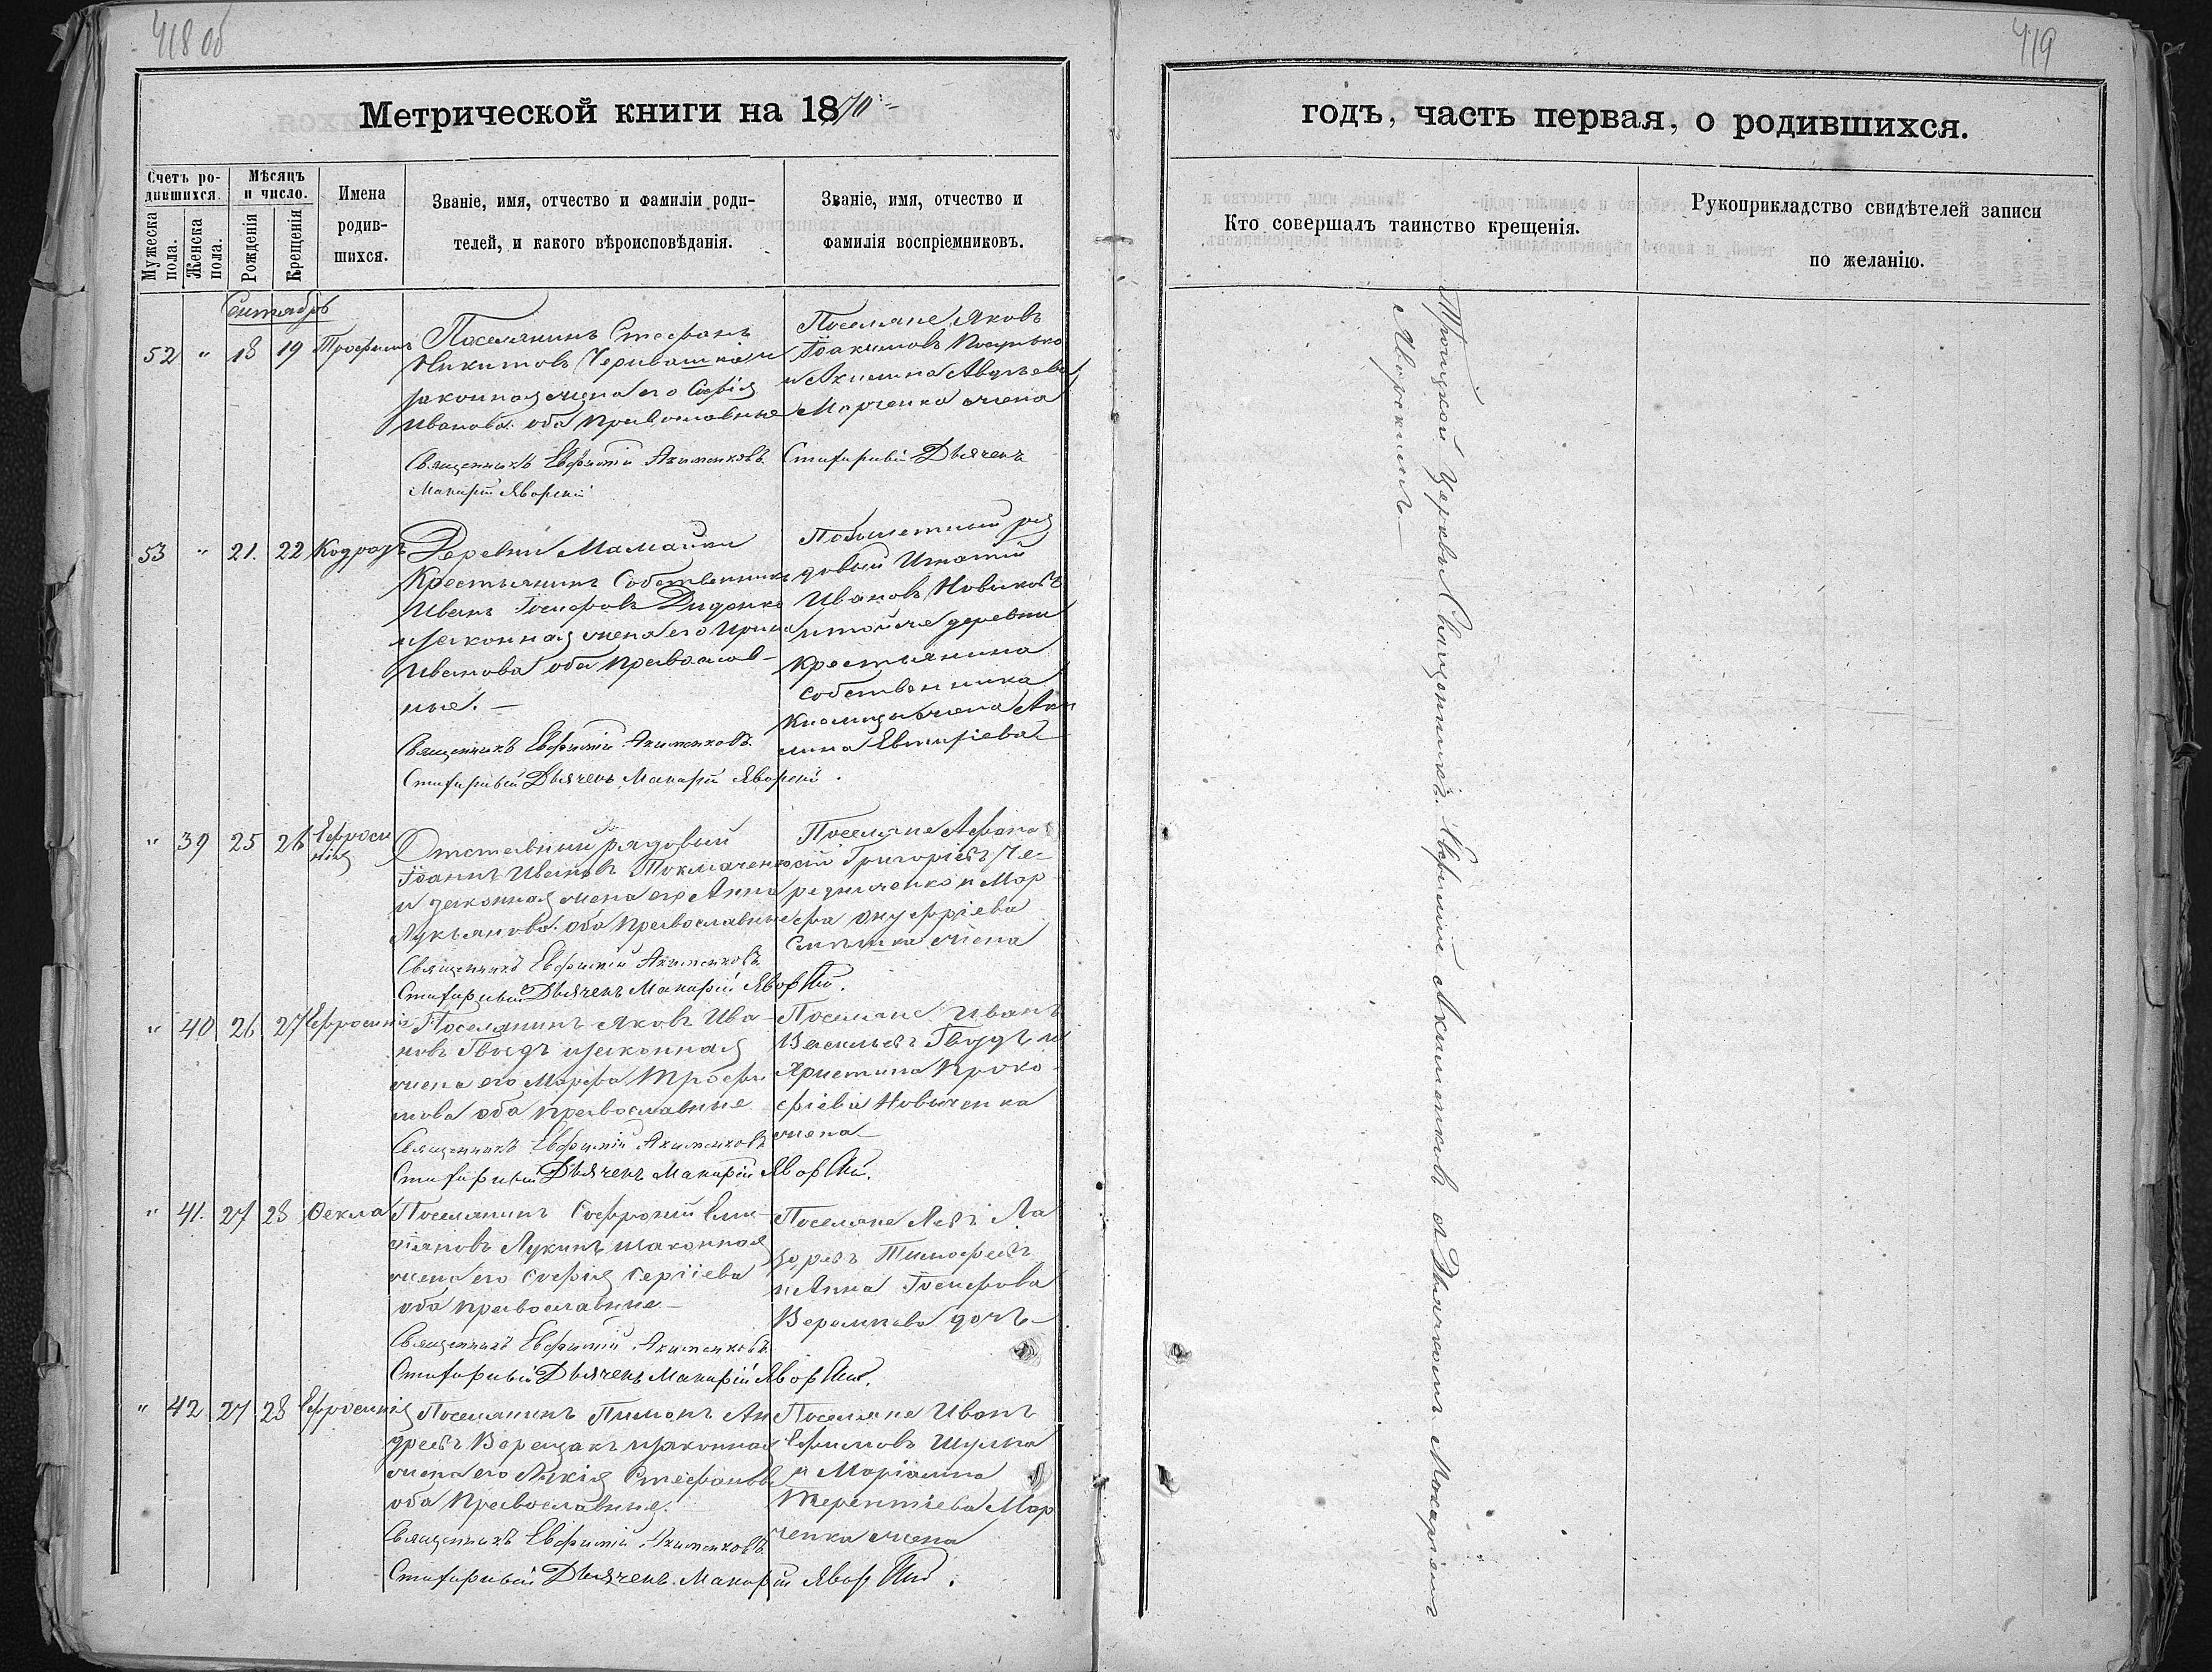 418 об
419
Метрической книги на 1870
годъ, часть первая, о родившихся.
Счетъ родившихся.
Мужеска пола.
Женска пола.
Мѣсяцъ и число.
Рожденія
Крещенія
Имена родившихся.
Званіе, имя, отчество и фамиліи роди-
телей, и какого вѣроисповѣданія.
Званіе, имя, отчество и
фамилія воспріемниковъ.
Кто совершалъ таинство крещенія.
Рукоприкладство свидѣтелей записи
по желанію.
Сентябрь
52 " 18 19 Трофимъ
Поселянинъ Стефанъ
Никитовъ и
законная жена его Софія
Иванова оба православные
Священникъ Евфимій Акименковъ
Макарій Яворскій
Поселяне Яковъ
Іоакимовъ
и Акилина
Марченко жена
Стихарный Дьячекъ
53 " 21. 22
Деревни Мамайки
Крестьянинъ Собственникъ
Иванъ Іосифовъ Диденко
и законная жена его Ирина
Иванова оба православ-
ные. —
Священникъ Евфимій Акименковъ
Стихарный Дьячекъ Макарій Яворскій
ря
довый Игнатій
Ивановъ Новиковъ
и той же деревни
Крестьянина
собственника
жена Аки
лина
" 39 25 26 Ефроси
нія
Отставный рядовый
Іоаннъ Ивановъ Токмаченко
и законная жена его Анна
Лукьянова оба православные
Священникъ Евфимій Акименковъ
Стихарный Дьячекъ Макарій Яворскій.
Поселяне Афана
сій Григорьевъ Че-
редниченко и Мар
фа Онуфріева
жена
" 40 26 27 Ефросинія
Поселянинъ Яковъ Ива-
новъ и законная
жена его Марфа Трофи
мова оба православные
Священникъ Евфимій Акименковъ
Стихарный Дьячекъ Макарій Яворскій.
Поселяне Иванъ
Васильевъ и
Христина Проко-
фіева
жена
" 41. 27 28 Фекла
Поселянинъ Софроній Еми-
ліановъ Лукинъ и законная
жена его Софія Сергіева
оба православные —
Священникъ Евфимій Акименковъ
Стихарный Дьячекъ Макарій Яворскій.
Поселяне Левъ Ла
заревъ Тимофеевъ
и Анна Іосифова
дочь
" 42 27 28 Ефросинія
Поселянинъ Пименъ Ан
дреевъ Верещакъ и законная
жена его Лукія Стефанова
оба Православные.
Священникъ Евфимій Акименковъ
Стихарный Дьячекъ Макарій Яворскій.
Поселяне Иванъ
Ефимовъ Шулга
и Маріанна
Терентіева Мар
ченка жена
Троицкой Церкви Священникъ Евфимій Акименковъ съ Дьячкомъ Макаріемъ
Яворскимъ —